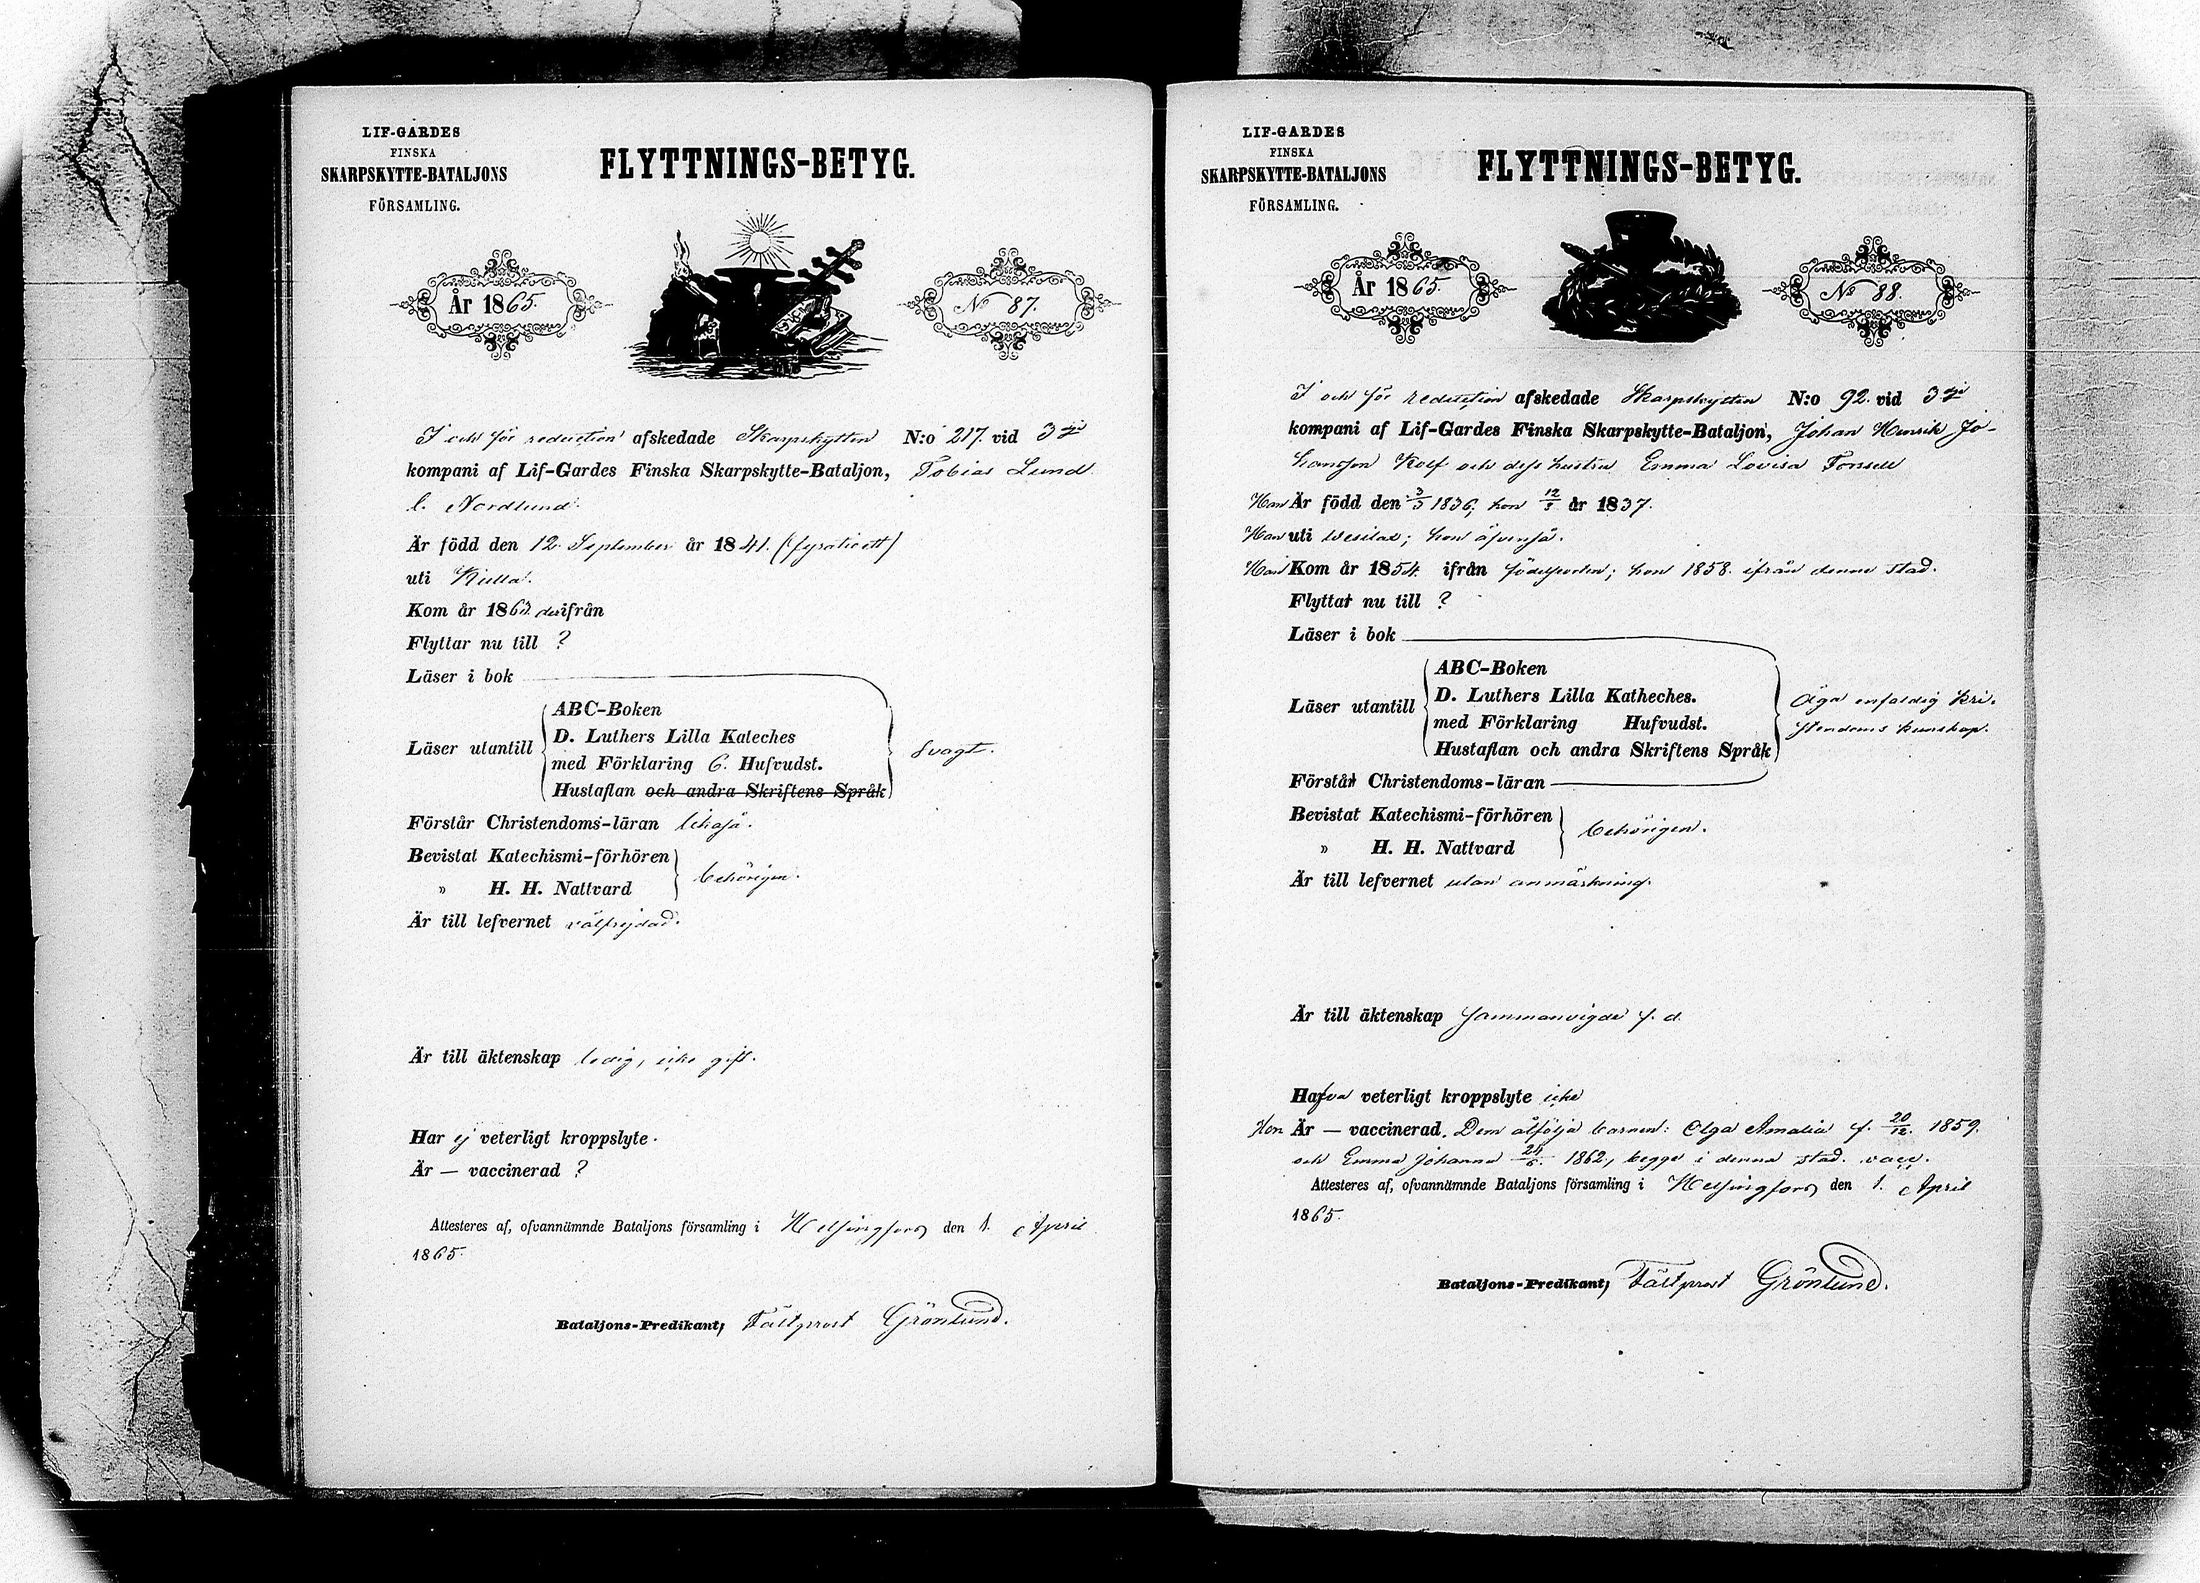 LIF-GARDES
FINSKA
SKARPSKYTTE-BATALJONS
FÖRSAMLING.
FLYTTNINGS-BETYG.
År 1865.
No 87.
I och för reduction afskedade Skarpskytten N:o 217. vid 3dje
kompani af Lif-Gardes Finska Skarpskytte-Bataljon, Tobias Lund
l. Nordlund.
Är född den 12. September år 1841. (fyratioett)
uti Kulla.
Kom år 1863. derifrån
Flyttar nu till ?
Läser i bok
Läser utantill
ABC-Boken
D. Luthers Lilla Kateches
med Förklaring 6. Hufvudst.
Hustaflan och andra Skriftens Språk
svagt.
Förstår Christendoms-läran likaså.
Bevistat Katechismi-förhören
» H. H. Nattvard
behörigen.
Är till lefvernet välfrejdad.
Är till äktenskap ledig, icke gift.
Har ej veterligt kroppslyte.
Är — vaccinerad ?
Attesteres af, ofvannämnde Bataljons församling i Helsingfors den 1. April
1865.
Bataljons-Predikant, Fältprost Grönlund.
LIF-GARDES
FINSKA
SKARPSKYTTE-BATALJONS
FÖRSAMLING.
FLYTTNINGS-BETYG.
År 1865.
No 88.
I och för reduction afskedade Skarpskytten N:o 92. vid 3dje
kompani af Lif-Gardes Finska Skarpskytte-Bataljon, Johan Henrik Jo-
hansson Rolf och dess hustru Emma Lovisa Forsell
Han Är född den 3/3 1836; hon 12/3 år 1837.
Han uti Wesilax; hon äfvenså.
Han Kom år 1854. ifrån födelseorten; hon 1858. ifrån denna stad.
Flyttat nu till ?
Läser i bok
Läser utantill
ABC-Boken
D. Luthers Lilla Katheches.
med Förklaring Hufvudst.
Hustaflan och andra Skriftens Språk
Äga enfaldig kri-
stendoms kunskap.
Förstår Christendoms-läran
Bevistat Katechismi-förhören
» H. H. Nattvard
behörigen.
Är till lefvernet utan anmärkning.
Är till äktenskap sammanvigde f. d.
Hafva veterligt kroppslyte icke
Hon Är — vaccinerad. Dem åtfölja barnen: Olga Amalia f. 20/12. 1859.
och Emma Johanna 24/6. 1862, begge i denna stad. vacc.
Attesteres af, ofvannämnde Bataljons församling i Helsingfors den 1. April
1865.
Bataljons-Predikant, Fältprost Grönlund.